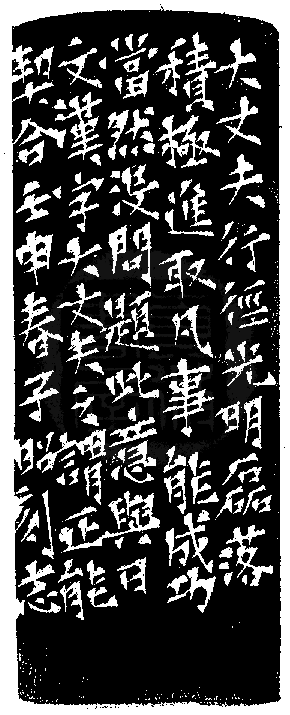 大丈夫行徑光明磊落
積極進取凡事能成功
當然沒問題此意與日
文漢字大丈夫之謂正能
契合壬申春子昭刻志